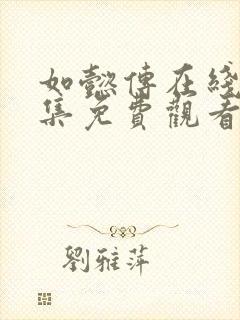 如懿傳在綫
集免費觀看
劉雅萍